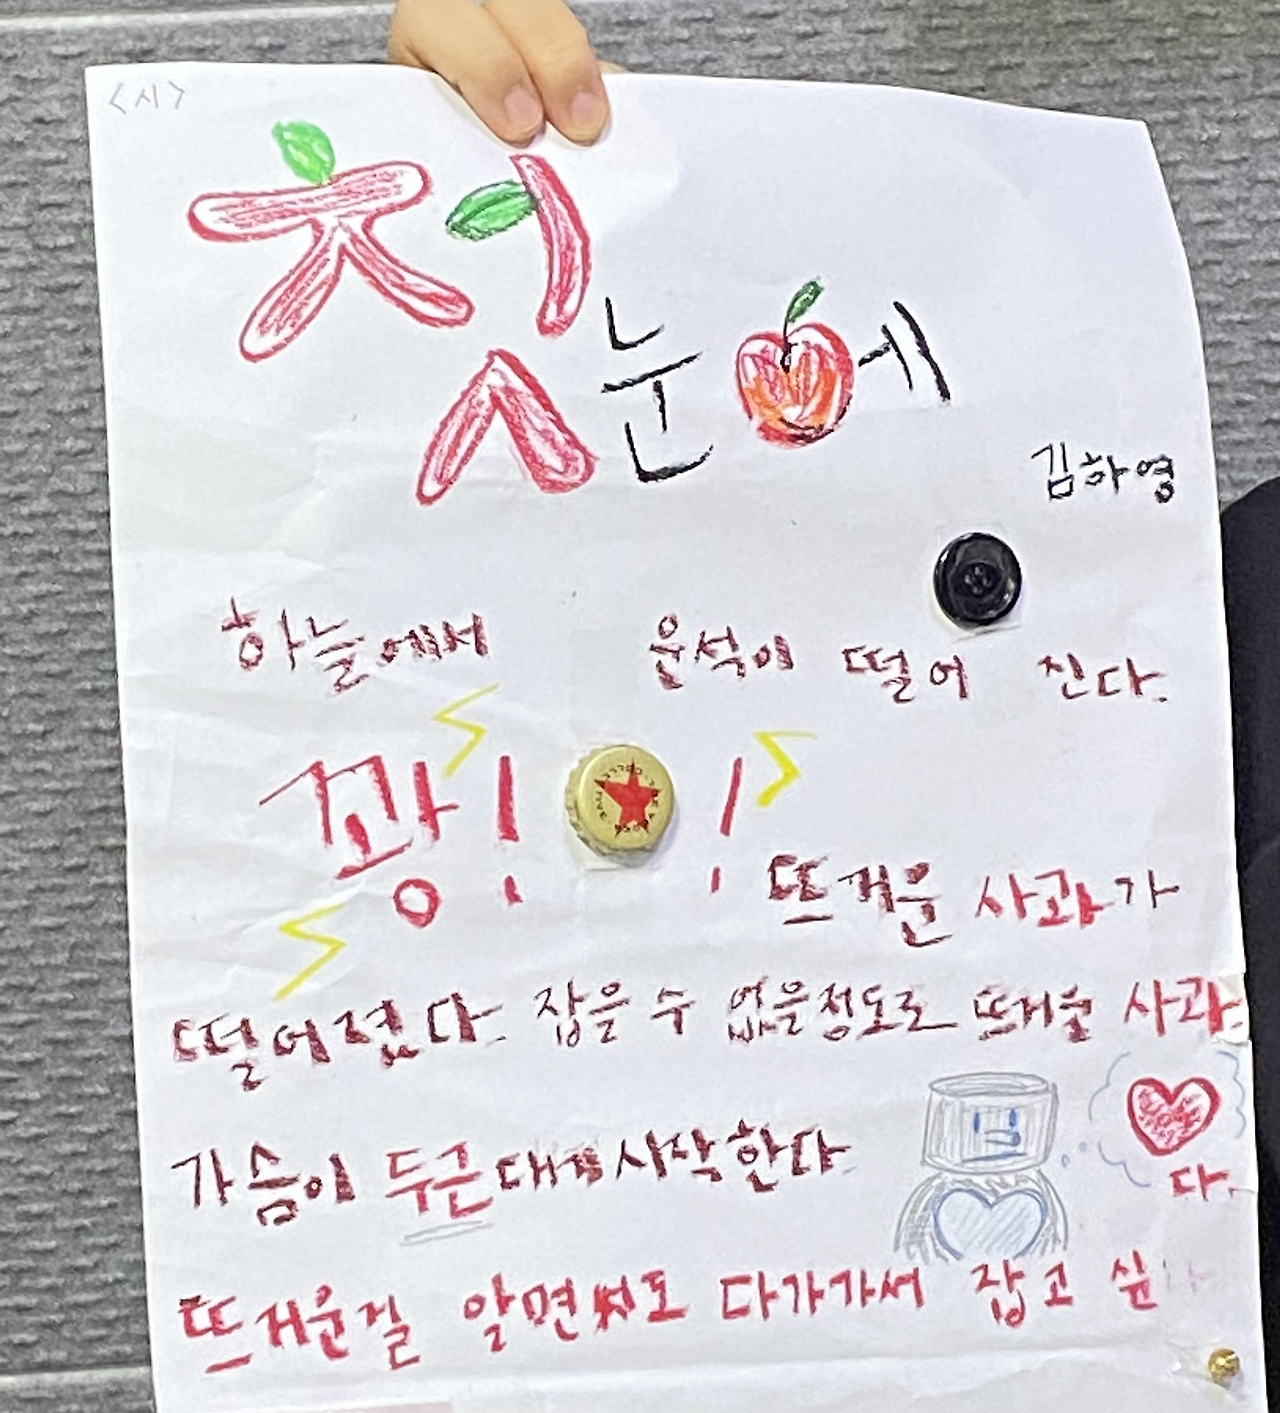 <시>
첫눈에
김하영
하늘에서 운석이 떨어 진다.
꽝! !
뜨거운 사과가
떨어졌다. 잡을 수 없을정도로 뜨거운 사과.
가슴이 두근대기시작한다.
뜨거운걸 알면서도 다가가서 잡고 싶
다.